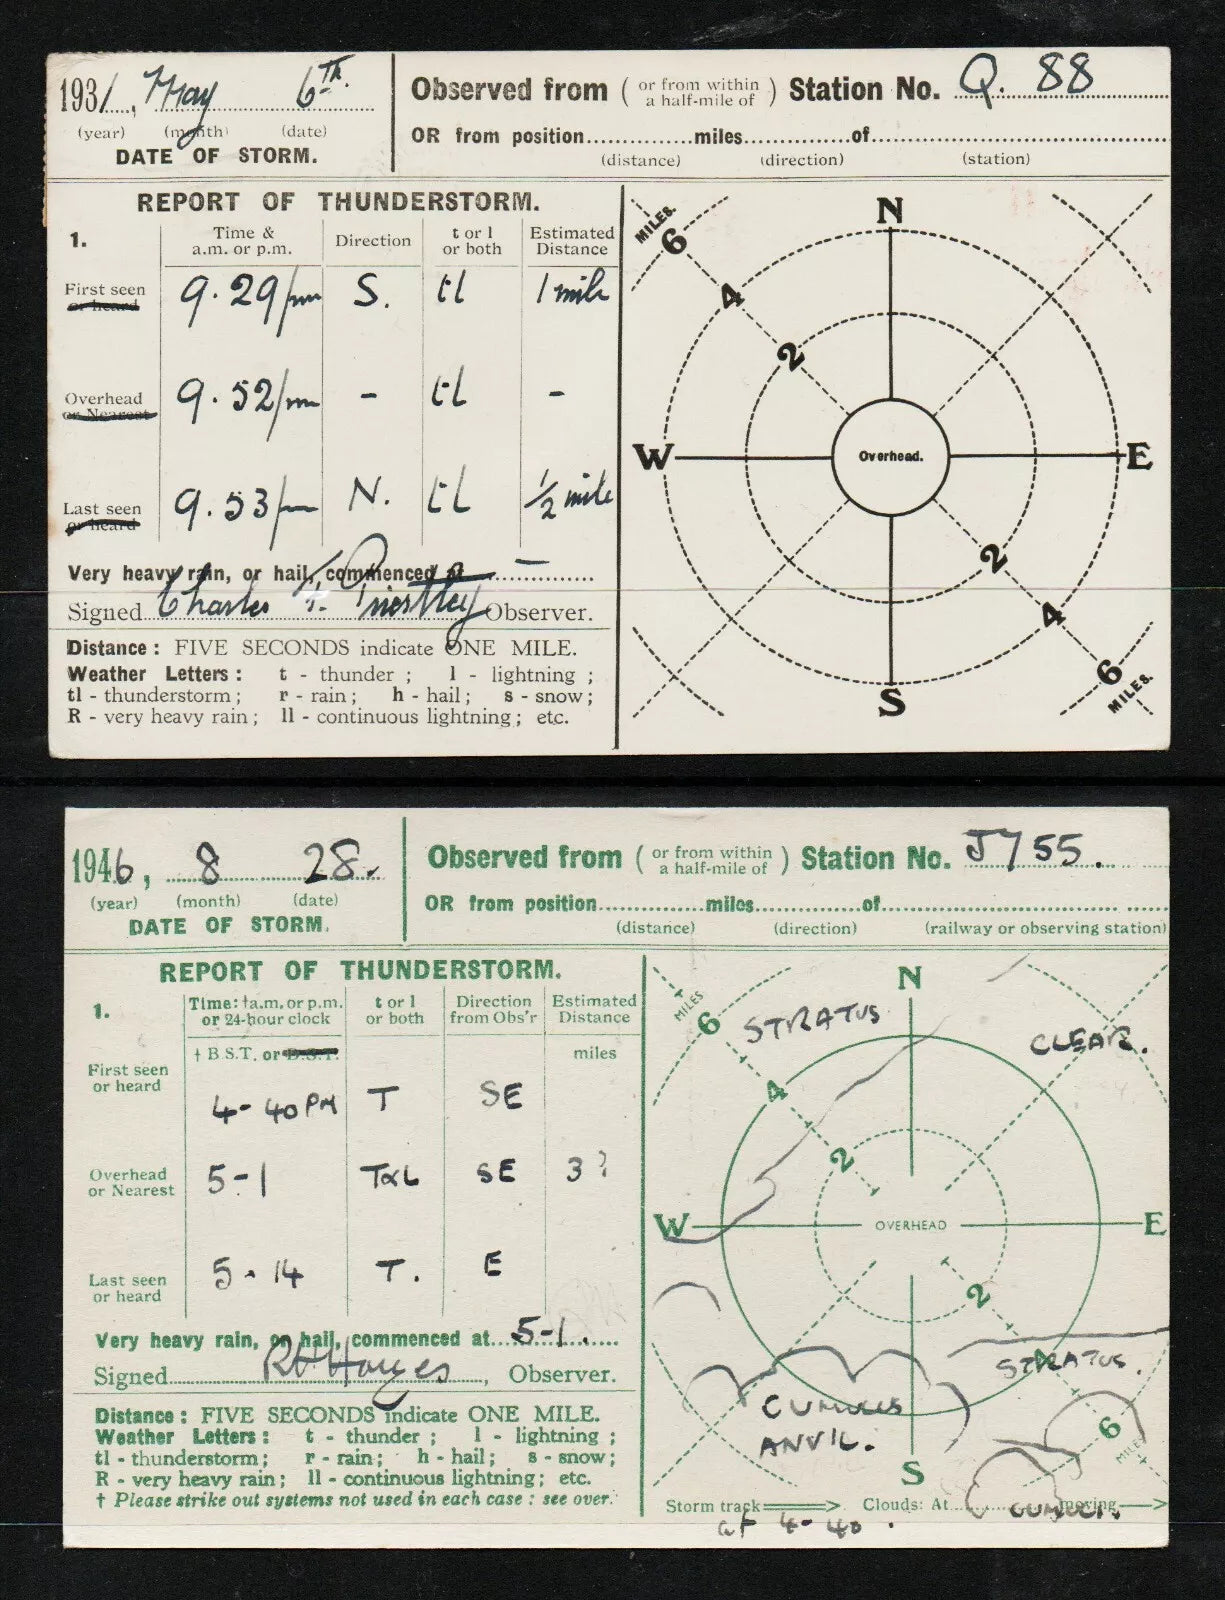 1931, May 6th.
(year) (month) (date)
DATE OF STORM.
Observed from ( or from within a half-mile of ) Station No. Q. 88
OR from position..........miles..........of..........
(distance) (direction) (station)
REPORT OF THUNDERSTORM.
1. Time & a.m. or p.m. Direction t or l or both Estimated Distance
First seen or heard 9.29 pm S. tl 1 mile
Overhead or Nearest 9.52 pm - tl -
Last seen or heard 9.53 pm N. tl 1/2 mile
Very heavy rain, or hail, commenced at —
Signed Charles F. Priestley Observer.
Distance : FIVE SECONDS indicate ONE MILE.
Weather Letters : t - thunder ; l - lightning ;
tl - thunderstorm ; r - rain ; h - hail ; s - snow ;
R - very heavy rain ; ll - continuous lightning ; etc.
MILES.
6
N
4
2
W
Overhead.
E
2
4
S
6
MILES.
1946, 8 28.
(year) (month) (date)
DATE OF STORM.
Observed from ( or from within a half-mile of ) Station No. J755.
OR from position..........miles..........of..........
(distance) (direction) (railway or observing station)
REPORT OF THUNDERSTORM.
1. Time: †a.m. or p.m. or 24-hour clock t or l or both Direction from Obs'r Estimated Distance
† B.S.T. or miles
First seen or heard 4-40 PM T SE
Overhead or Nearest 5-1 T&L SE 3?
Last seen or heard 5.14 T. E
Very heavy rain, or hail, commenced at 5-1.
Signed RH Hayes, Observer.
Distance : FIVE SECONDS indicate ONE MILE.
Weather Letters : t - thunder ; l - lightning ;
tl - thunderstorm ; r - rain ; h - hail ; s - snow ;
R - very heavy rain ; ll - continuous lightning ; etc.
† Please strike out systems not used in each case : see over.
N
MILES
6
STRATUS
CLEAR.
4
2
W
OVERHEAD
E
2
STRATUS.
4
CUMULUS
ANVIL.
6
MILES
S
Storm track Clouds: At.......... moving
CUMULI.
at 4-40.